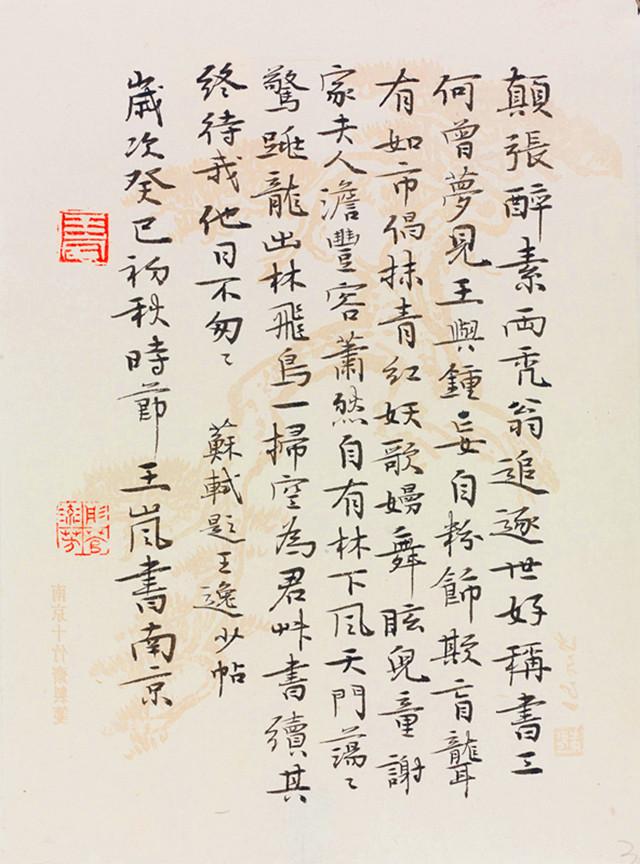 顛張醉素兩禿翁追逐世好稱書工
何曾夢見王與鍾妄自粉飾欺盲聾
有如市倡抹青紅妖歌嫚舞眩兒童謝
家夫人澹豐容蕭然自有林下風天門蕩〻
驚跳龍出林飛鳥一掃空為君艸書續其
終待我他日不匆〻 蘇軾題王逸少帖
歲次癸巳初秋時節王嵐書南京
彤管流芳
南京十竹齋製箋